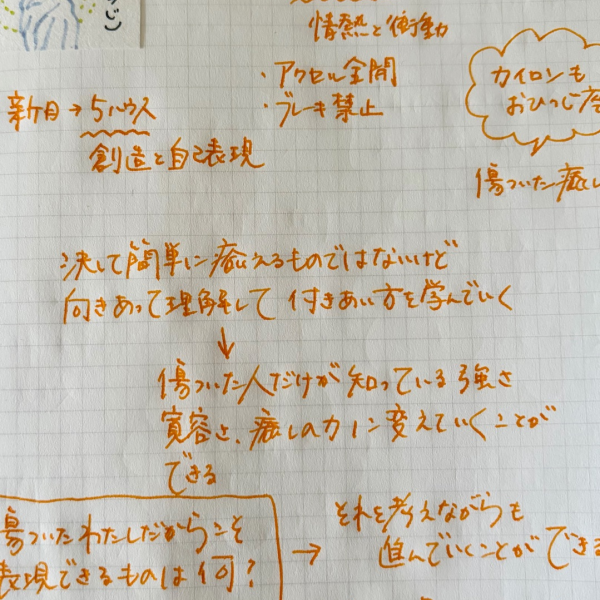 情熱と衝動
・アクセル全開
・ブレーキ禁止
カイロンも
おひつじ座
新月→5ハウス
創造と自己表現
傷ついた癒し
決して簡単に癒えるものではないけど
向きあって理解して付きあい方を学んでいく
↓
傷ついた人だけが知っている強さ
寛容さ、癒しの力に変えていくことが
できる
傷ついたわたしだからこそ
表現できるものは何?
→
それを考えながらも
進んでいくことができる